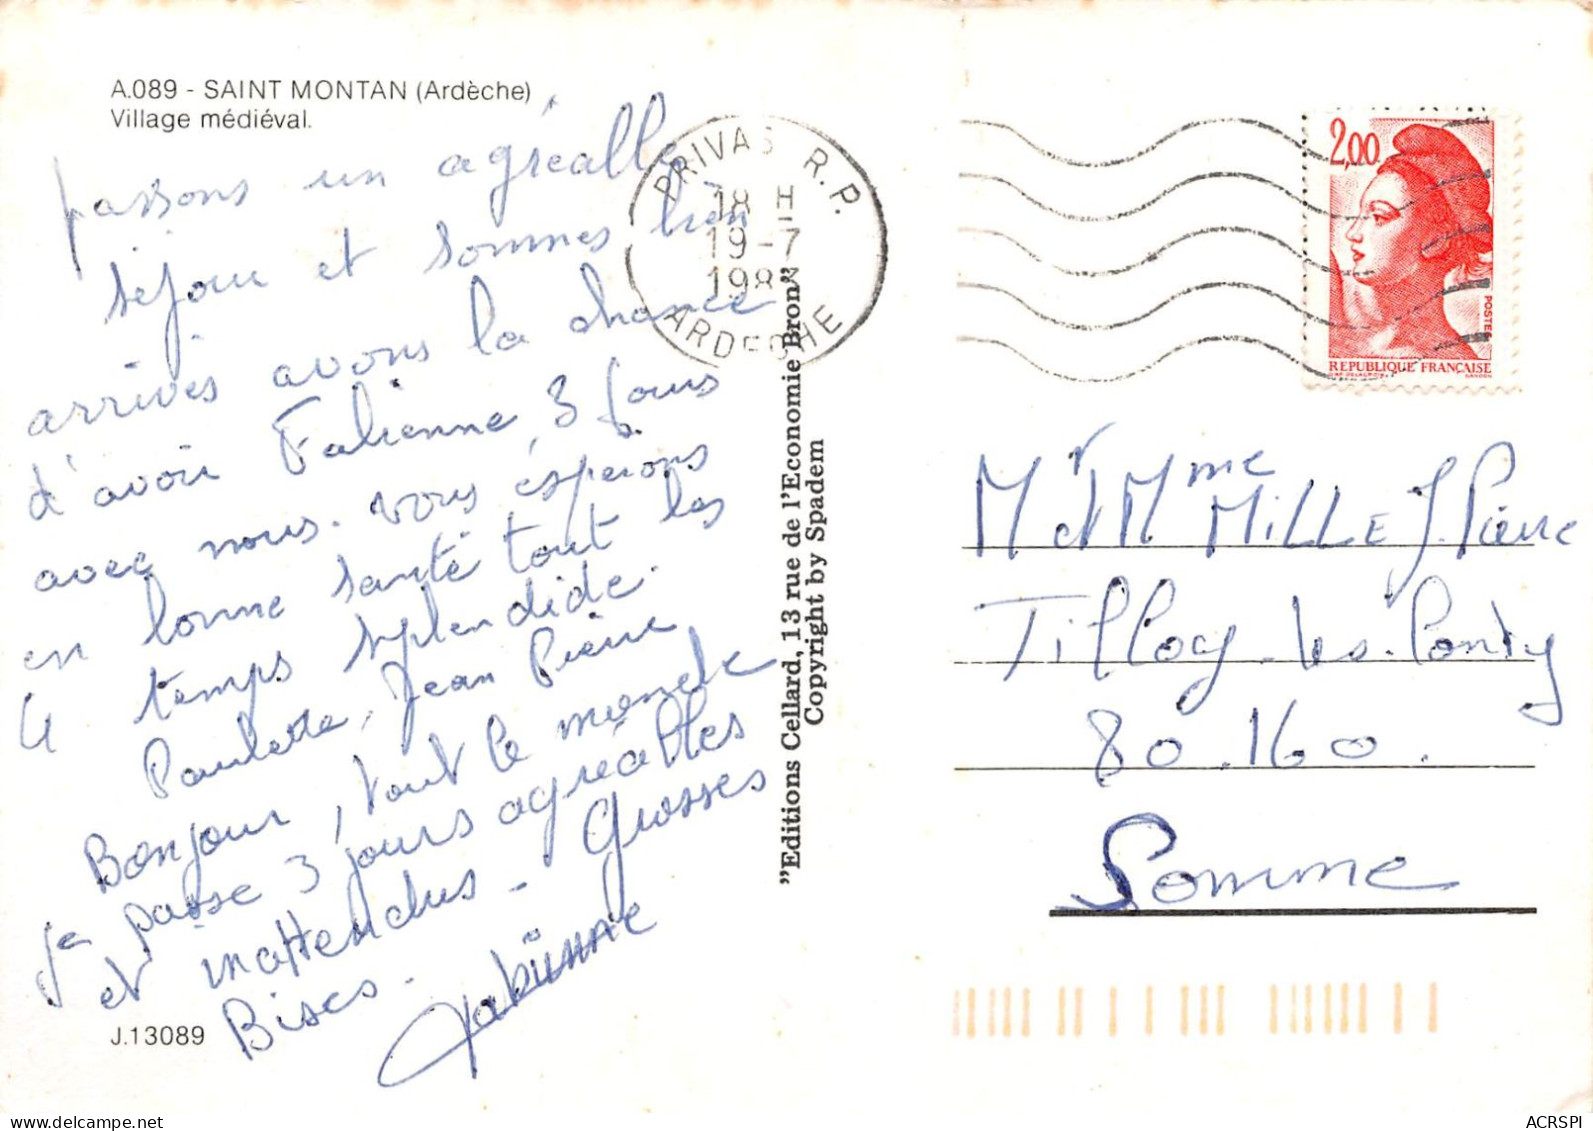 A.089 - SAINT MONTAN (Ardèche)
Village médiéval.
passons un agréable
séjour et sommes bien
arrivés avons la chance
d'avoir Fabienne, 3 jours
avec nous. vous espérons
en bonne santé tout les
4 temps splendide.
Paulette, Jean Pierre
Bonjour, tout le monde
je passe 3 jours agréables
et inattendus - Grosses
Bises.
Fabienne
J.13089
PRIVAS R.P.
18 H
19-7
198
ARDECHE
"Editions Cellard, 13 rue de l'Economie Bron"
Copyright by Spadem
2,00
POSTES
REPUBLIQUE FRANÇAISE
Mr et Mme MILLE J. Pierre
Tilloy-les-Conty
80.160.
Somme
ACRSPI